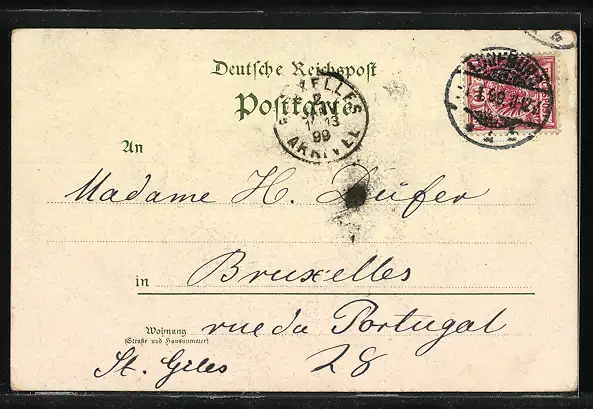 Deutsche Reichspost
Postkarte
XELLES
2
JANV
13
99
ARRIVEE
An
Madame H. Düfer
in Bruxelles
Wohnung
(Straße und Hausnummer)
rue du Portugal
St. Giles 28